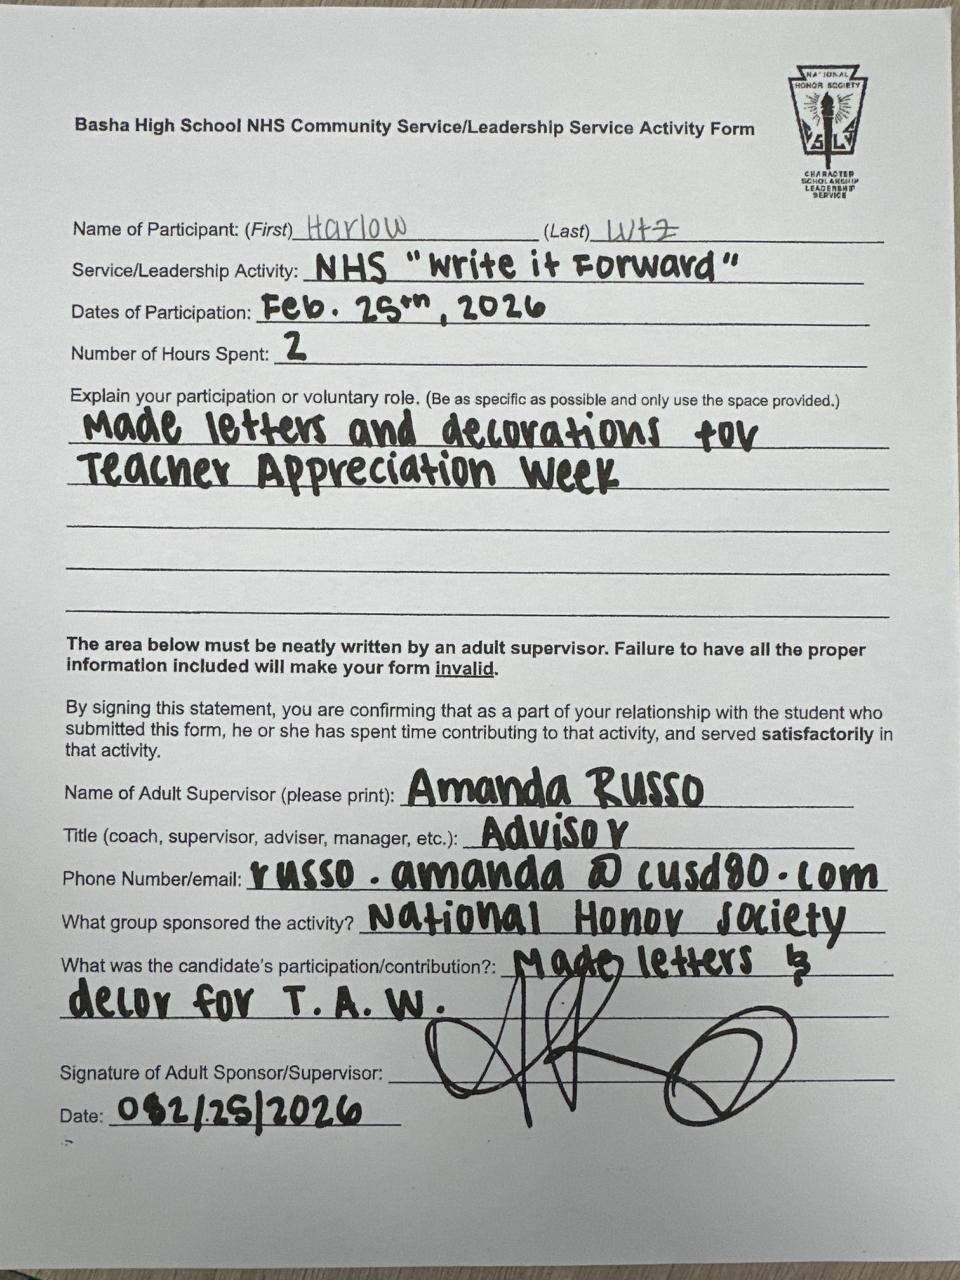 NATIONAL
HONOR SOCIETY
S L
CHARACTER
SCHOLARSHIP
LEADERSHIP
SERVICE
Basha High School NHS Community Service/Leadership Service Activity Form
Name of Participant: (First) Harlow (Last) Wtz
Service/Leadership Activity: NHS "Write it Forward"
Dates of Participation: Feb. 25th, 2026
Number of Hours Spent: 2
Explain your participation or voluntary role. (Be as specific as possible and only use the space provided.)
Made letters and decorations for
Teacher Appreciation Week
The area below must be neatly written by an adult supervisor. Failure to have all the proper
information included will make your form invalid.
By signing this statement, you are confirming that as a part of your relationship with the student who
submitted this form, he or she has spent time contributing to that activity, and served satisfactorily in
that activity.
Name of Adult Supervisor (please print): Amanda Russo
Title (coach, supervisor, adviser, manager, etc.): Advisor
Phone Number/email: russo.amanda@cusd80.com
What group sponsored the activity? National Honor Society
What was the candidate's participation/contribution?: Made letters &
decor for T.A.W.
Signature of Adult Sponsor/Supervisor:
Date: 02/25/2026